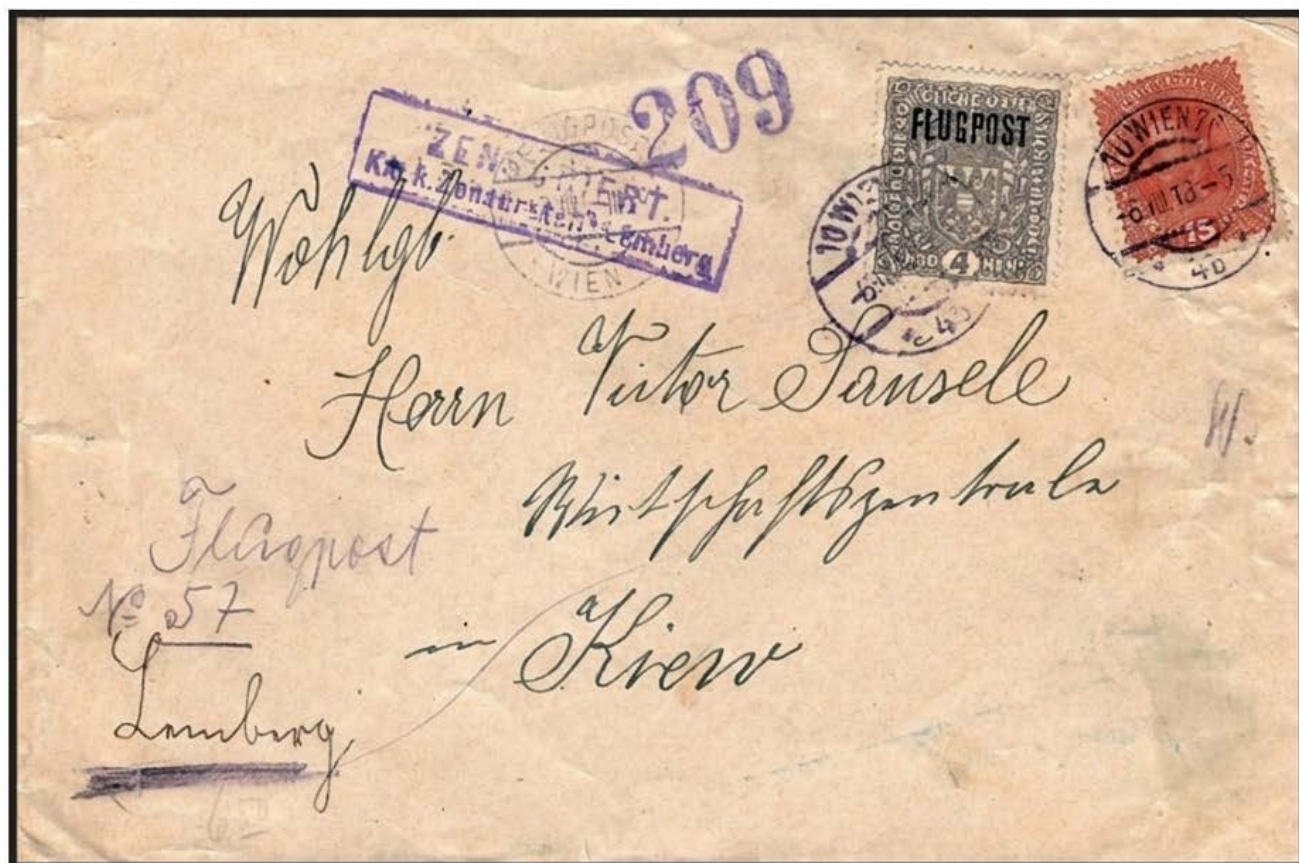 209
ZENSURIERT.
K.u.k. Zensurstelle Lemberg
FLUGPOST
WIEN
4
10 WIEN
15
10 WIEN 76
4b
Wohlgb.
Herrn Victor Sausele
Wirtschaftszentrale
in Kiew
Flugpost
No 57
Lemberg